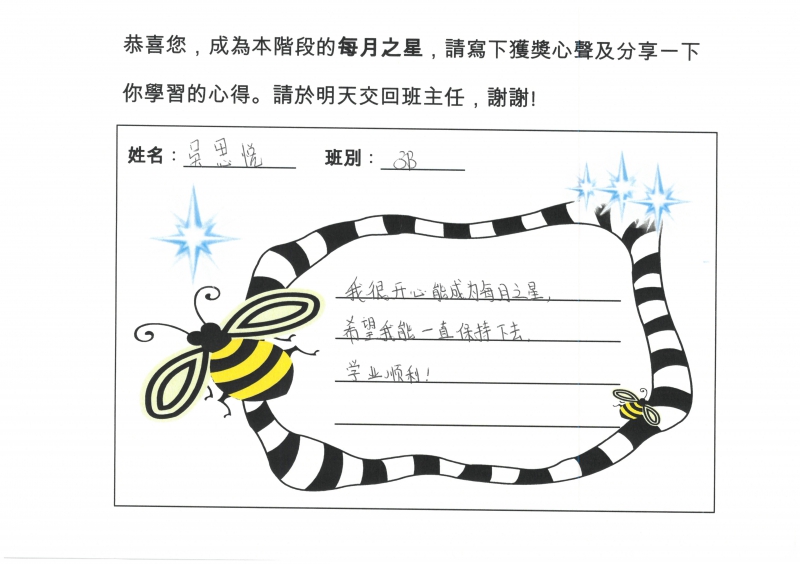 恭喜您，成為本階段的每月之星，請寫下獲獎心聲及分享一下
你學習的心得。請於明天交回班主任，謝謝!
姓名：吴思悦 班別：3B
我很开心能成为每月之星,
希望我能一直保持下去.
学业顺利!